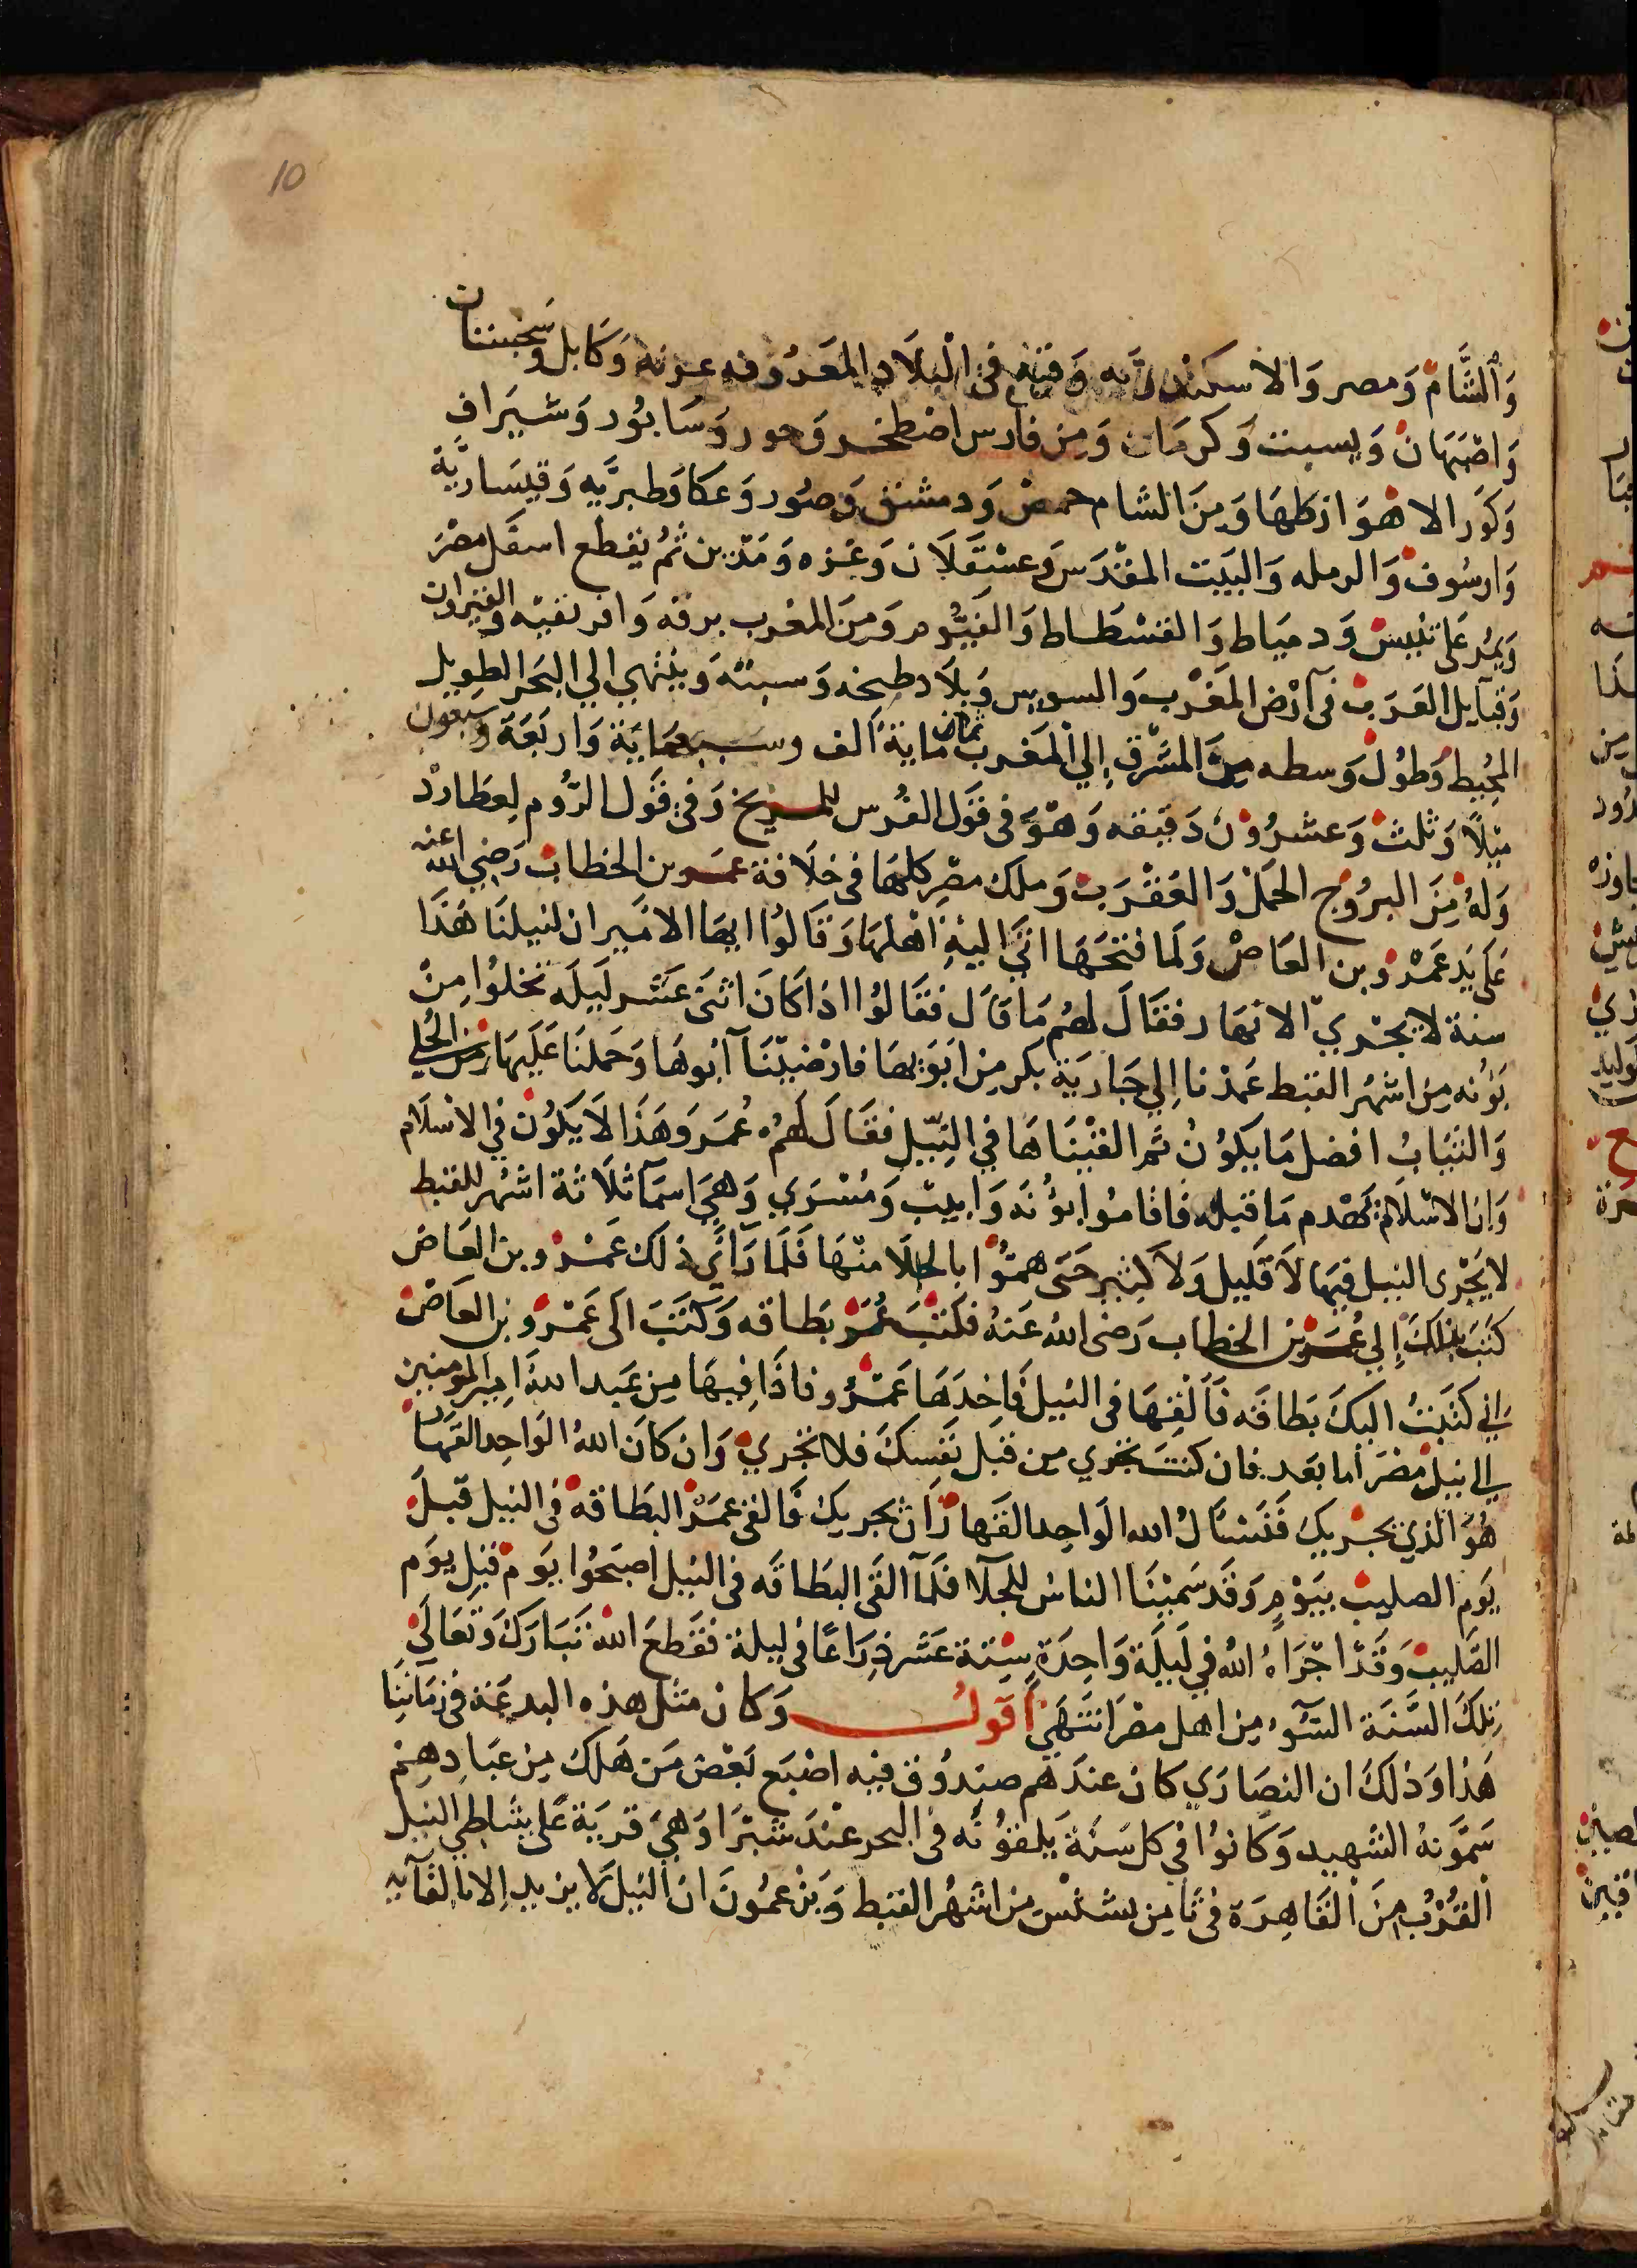 10
وَالشَّام وَمصر وَالاسكندريّه وَفيه في البلَاد المعَرُوفه عزنه وَكابل وسَجستان
وَاصْبَهَان وَيسبت وَكرمَان وَمِن فارس اصْطخر وَجور وَسَابُور وَشيَراف
وَكوَر الاهوَاز كلهَا وَمِنَ الشام حمص وَدمشق وَصُور وَعكا وَطبريَّه وَقيسَاريَّة
وَارسُوف وَالرمله وَالبَيت المقْدَس وَعسْقَلَان وَغزه وَمَدْين ثمُ يقطع اسفَل مصْرَ
وَيمُر عَلى تنيس وَدميَاط وَالفسْطَاط وَالفَيُّوم وَمِنَ المغرب برقه وَافريقيّه والقيروان
وَقبَآيل العَرَب في آرْض المَغْرب وَالسويس وَبلَاد طنجه وَسبتَه وَينتهي الي البَحر الطويل
المحُيط وَطوُل وَسطه مِنَ المَشْرق إلي المغَرب ثمان ماية ألف وسبعمَايَة وَاربَعَة وسبعون
ميْلًا وَثلث وَعشرُوْن دَقيقه وَهوَ في قوَل الفُرس للمريخ وَفي قوَل الرُّوم لعطارد
وَلهُ مِنَ البرُوُج الحمَل وَالعَقْرَب وَملك مصْر كلهَا في خلَافة عمَر بن الخطاب رَضي الله عنه
عَلى يَد عَمْرو بن العَاص وَلمَا فتحَهَا اتَي اليْهِ اهْلهَا وَقَالوُا ايهَا الامَير ان لنيلنَا هَذَا
سنة لا يجْري الانهَار فقَالَ لهمُ مَا قَال فقَالوُا اذا كانَ اثنىَ عَشر لَيلَه تخلوُا مِنْ
بَوُنه مِن اشهُر القبط عَمدْنا إلي جَاريَة بكر مِن ابَوَيهَا فارضيْنَآ آبوهَا وَحمَلنَا عَلَيهَا من الحُلي
وَالثيَابُ افضل مَا يكوُنُ ثم القيْنَاهَا في النّيل فقَالَ لَهُمْ عُمَرَ وَهَذَا لَا يَكوُن في الاسلَام
وَان الاسْلَام يَهْدم مَا قبله فاقامُوا بوُنَه وَابيبْ وَمسْرَي وَهيَ اسمَآ ثلَاثة اشهُر للقبط
لا يَجْرى النيل فيهَا لَا قَليل وَلَا كثير حَتى همتُّوا بالجلَا منْهَا فلَمَا رَآي ذلك عَمْرو بن العَاص
كتَبَ بذلكَ إلي عُمَر بن الخطاب رَضى الله عَنهُ فكتبَ عُمَر بَطاقه وَكتَبَ الى عَمْرو بن العَاص
اني كتَبتُ اليكَ بَطاقَه فَآلْقهَا في النيل فَاخِدَهَا عَمْرُو فاذَا فِيهَا مِن عَبد اللهِ امِير المومنين
الي نيل مصْرَ أما بعَد فان كنتَ تجري مِن قبَل نَفسكَ فلا تجري وَان كانَ اللهُ الوَاحد القهار
هُوَ الذي يجْريك فنَسْأل الله الوَاحِد القهار آن يجريك فَالقى عَمْر البَطاقه في النيل قبلَ
يَوم الصليب بيَوْمٍ وَقَد سَميْنَا الناسُ للجَلآ فلَمآ القَى البطَاقَه في النيل اصبَحوُا يوَم قبل يوَم
الصَليبْ وَقَدْ اجْرَاهُ الله في لَيلَةٍ وَاحِدَة سِتة عَشر ذِرَاعًا في ليلة فقطعَ اللهُ تبَارَكَ وَتَعَالَى
تِلكَ السَّنَة السَّوُء مِن اهل مصْر انتَهَى أقول وَكان مثل هَذه البدعَة في زمَاننِا
هَذا وَذلكَ ان النصَارَي كان عندَهمُ صندُوق فيْه اصْبَع بَعْض مَن هَلك مِن عبَادِهِم
سَمَّونهُ الشهيد وَكانوُا في كل سَنَة يَلقوُنَه في البحر عنْدَ شبْرَا وَهيَ قريَة عَلى شاطي النيل
القُرْب مِنَ القَاهِرَة في ثَامِن بشنْس مِن اشهُر القبط وَيَزعمُونَ ان النيلَ لَا يزيد إلا بالقآيه